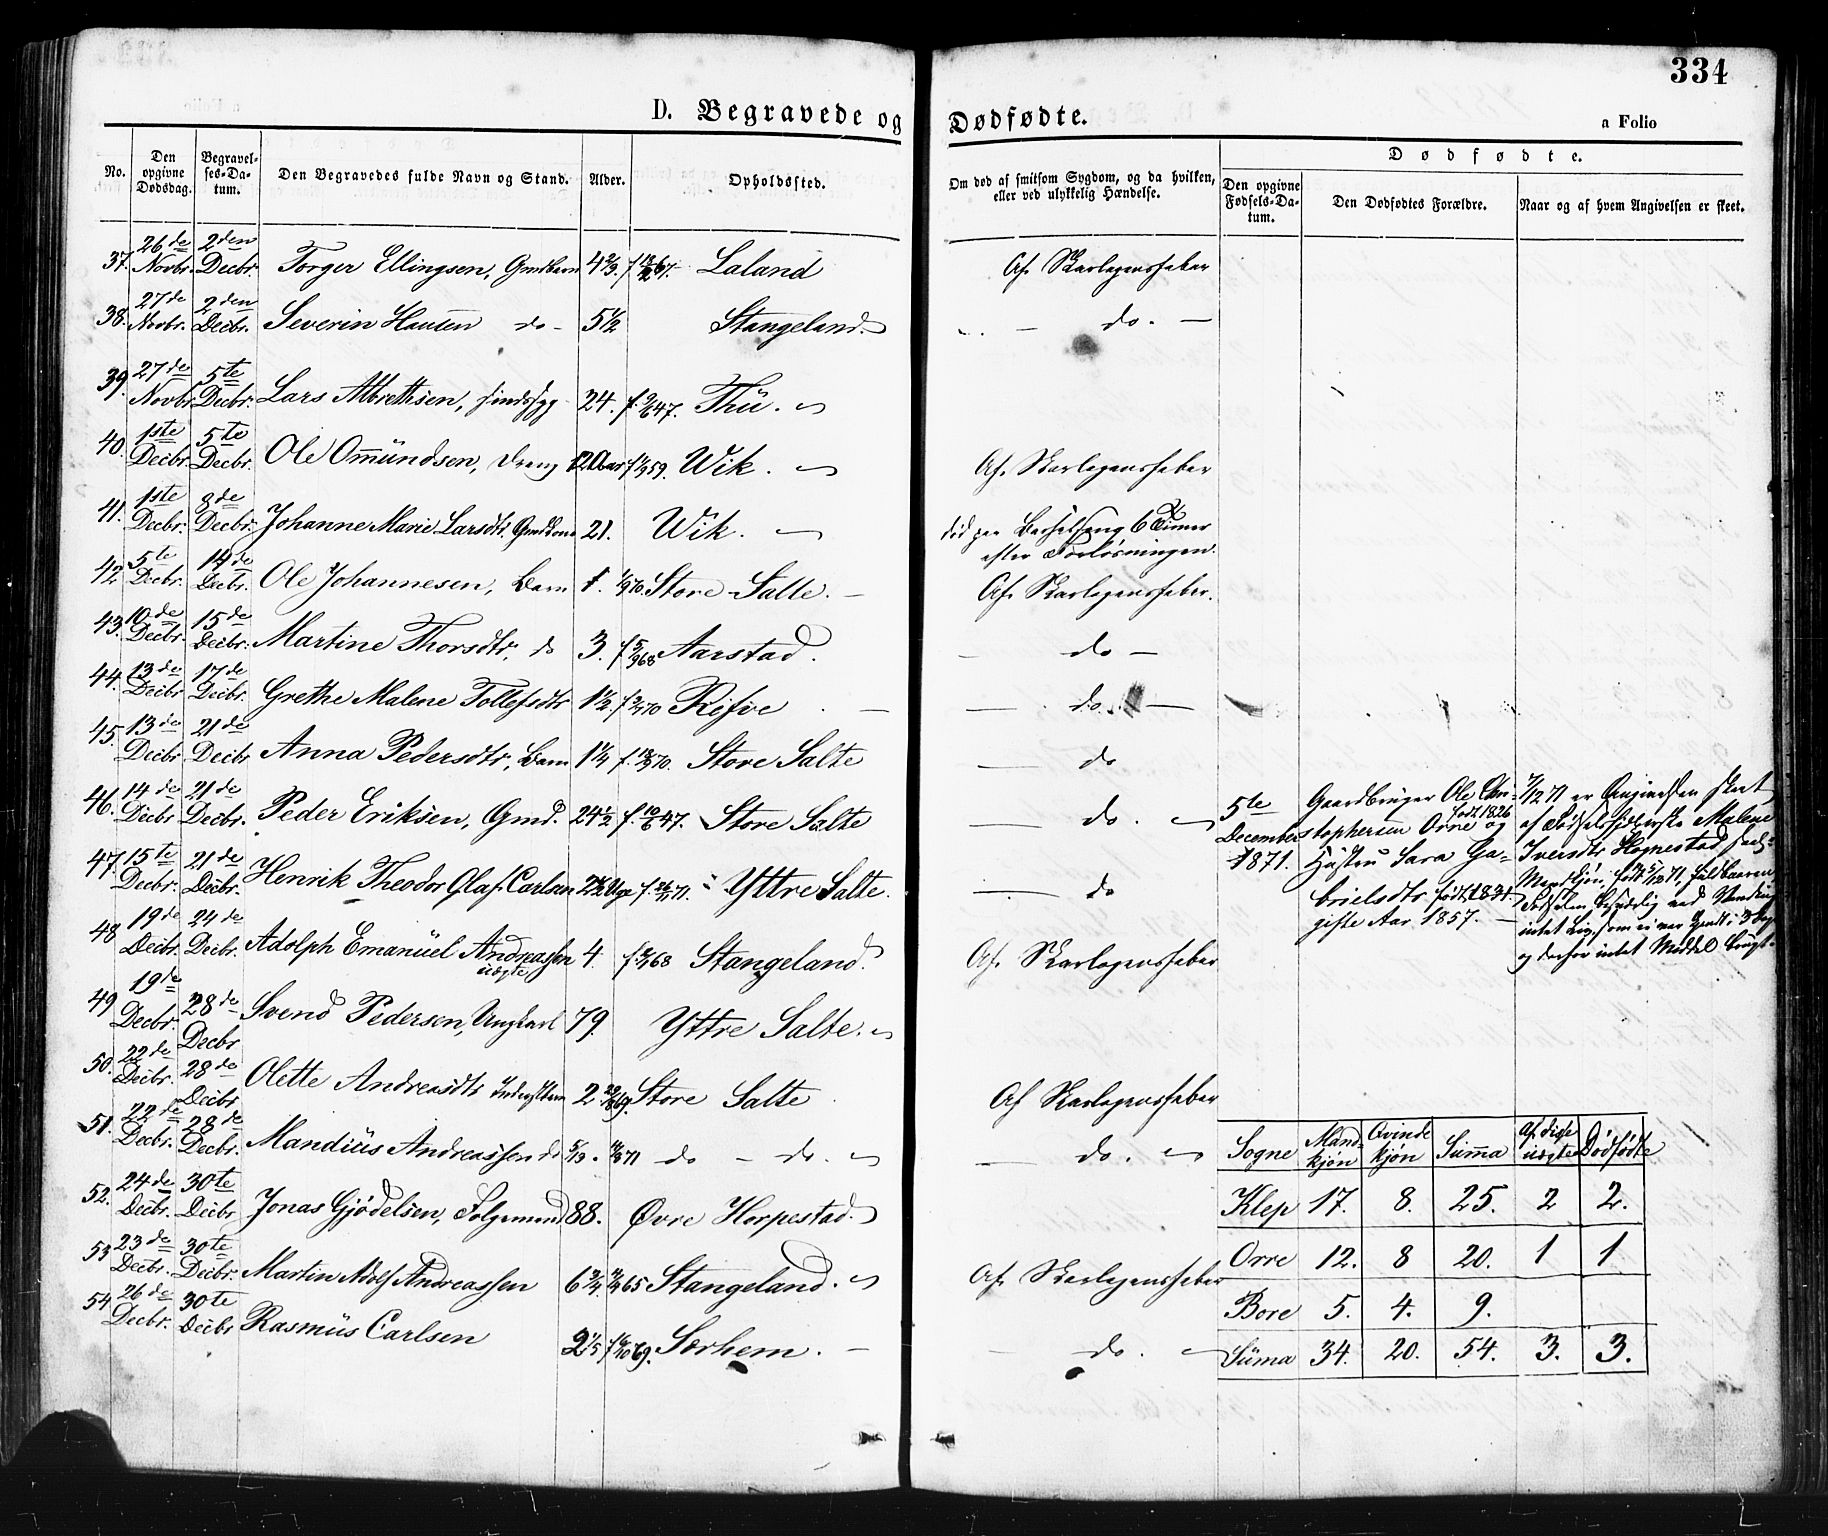 334
D. Begravede og Dødfødte.
a Folio
No.
Den opgivne Dødsdag.
Begravel-ses-Da-tum.
Den Begravedes fulde Navn og Stand.
Alder.
Opholdssted.
Om død af smitsom Sygdom, og da hvilken, eller ved ulykkelig Hændelse.
Dødfødte.
Den opgivne Fødsels-Da-tum.
Den Dødfødtes Forældre.
Naar og af hvem Angivelsen er skeet.
37. 26de Novbr. 2den Decbr. Torger Ellingsen, Gmdbarn 4 2/3. Laland Af Skarlagensfeber
38. 27de Novbr. 2den Decbr. Severin Hansen do - 5 1/2 Stangeland. — do. —
39. 27de Novbr. 5te Decbr. Lars Albrethsen, sindssyg 24. f. 9/6 47. Thü.
40. 1ste Decbr. 5te Decbr. Ole Omündsen, Dreng 12 Aar Wik. Af Skarlagensfeber
41. 1ste Decbr. 8de Decbr. Johanne Marie Larsdtr. Gmdkone 21. Wik. død paa Barselseng 6 Timer
efter Forløsningen.
42. 5te Decbr. 14de Decbr. Ole Johannesen, Barn 1. Store-Salte. — Af Skarlagensfeber.
43. 10de Decbr. 15de Decbr. Martine Thorsdtr. do 3. f 5/9 68 Aarstad. — do —
44. 13de Decbr. 17de Decbr. Grethe Malene Tollefsdtr 1 1/2. Refve — do. —
45. 13de Decbr. 21de Decbr. Anna Pedersdtr, Barn 1 1/4 Store Salte — do
46. 14de Decbr. 21de Decbr. Peder Eriksen, Gmd. 24 1/2 f. 10/6 47. Store Salte — do.
47. 15te Decbr. 21de Decbr. Henrik Theodor Olaf Carlsen Yttre Salte. — do
48. 19de Decbr. 24de Decbr. Adolph Emanüel Andreassen
uægte 4. Stangeland. Af Skarlagensfeber
49. 19de Decbr. 28de Decbr Svend Pedersen, Ungkarl 79. Yttre Salte.
50. 22de Decbr. 28de Decbr Olette Andreasdtr 2 Store Salte Af Skarlagensfeber
51. 22de Decbr. 28de Decbr. Mandius Andreassen do do — do. — do.
52. 24de Decbr. 30te Decbr Jonas Gjødelsen, Folgemand 88. Øvre Horpestad.
53. 23de Decbr. 30te Decbr. Martin Adolf Andreassen 6 3/4 Stangeland. Af Skarlagensfeber
54. 26de Decbr. 30te Decbr Rasmüs Carlsen 2 1/5 Særhem. — do.
5te
December
1871.
Gaardbruger Ole Chri-
stophersen Orre og
født 1826
Hustru Sara Ga-
brielsdtr født 1831.
gifte Aar 1857. —
7/12 71 er Angivelsen skeet
af Malene
Iversdtr Høgnestad
Mandkjøn, født 5/12 71, fuldbaaren
intet Liv,
og derfor intet Middel brugt.
Sogne Mand-kjøn Qvinde kjøn Sümma Af disse uægte Dødfødte
Klep 17. 8. 25. 2 2.
Orre 12. 8 20. 1 1
Bore 5. 4. 9.
Süma 34. 20. 54. 3. 3.